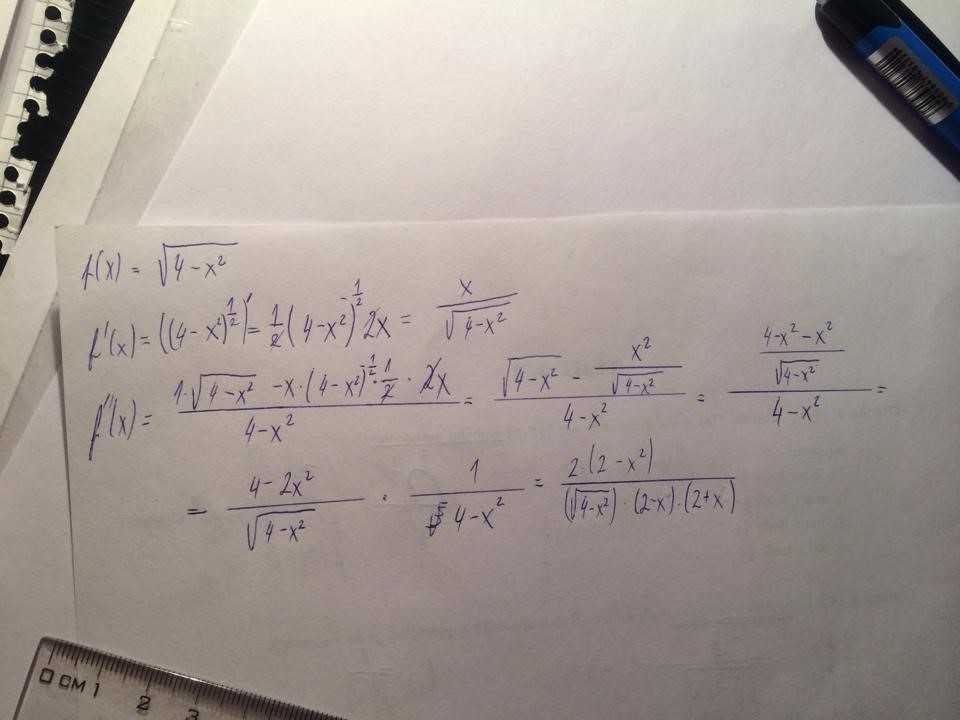 f(x) = √(4-x²)
f'(x) = ((4-x²)^(1/2))' = 1/2 (4-x²)^(-1/2) 2x = x/√(4-x²)
f''(x) = (1·√(4-x²) - x·(4-x²)^(-1/2)·1/2·2x)/(4-x²) = (√(4-x²) - x²/√(4-x²))/(4-x²) = ((4-x²-x²)/√(4-x²))/(4-x²) =
= (4-2x²)/√(4-x²) · 1/(4-x²) = 2·(2-x²)/((√(4-x²))·(2-x)·(2+x))
0 CM 1 2 3